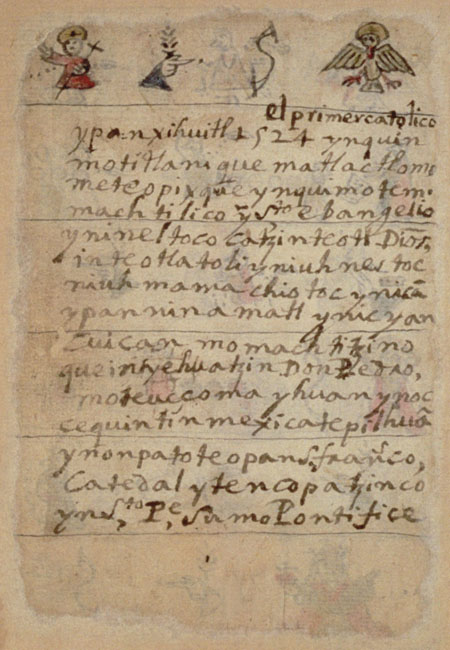 el primer catolico
ypan xihuitl 1524 ynquin
motitlanique matlactlomo
meteopixque ynquimotem.
machtilico y Sto ebangelio
ynineltococatzinteotl Dios,
inteotlatoli yniuh nestoc
niuh mamachiotoc ynicā
ypannin amatl ynic yan
cuican momachtitzino
que in tyehuatzin Don Pedro,
moteuccoma yhuan ynoc
cequintin mexica tepilhuā
ynonpa toteopan S. franco,
Catedal ytencopatzinco
yn Sto, Pe, Sumo Pontifice